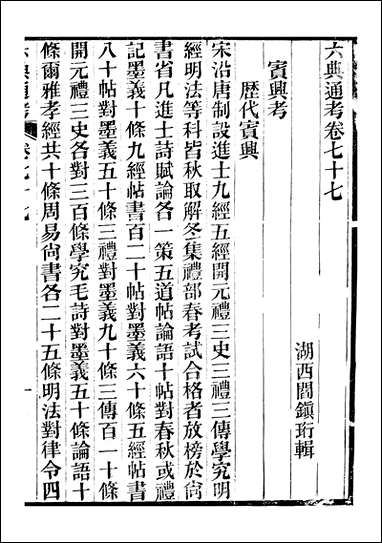 六典通考卷七十七
湖西閻鎮珩輯
賓興考
歷代賓興
宋沿唐制設進士九經五經開元禮三史三禮三傳學究明
經明法等科皆秋取解冬集禮部春考試合格者放榜於尙
書省凡進士詩賦論各一策五道帖論語十帖對春秋或禮
記墨義十條九經帖書百二十帖對墨義六十條五經帖書
八十帖對墨義五十條三禮對墨義九十條三傳百一十條
開元禮三史各對三百條學究毛詩對墨義五十條論語十
條爾雅孝經共十條周易尙書各二十五條明法對律令四
六典通考
卷七十七
一